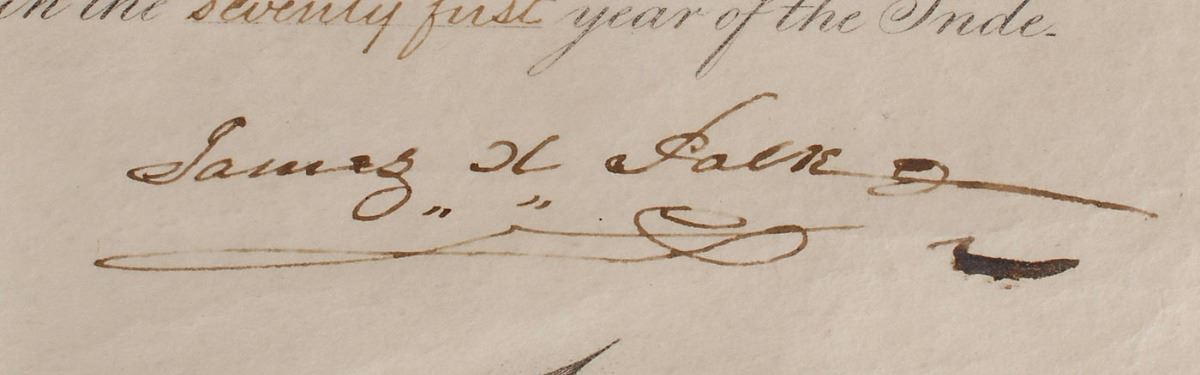 in the seventy first year of the Inde-
James K Polk